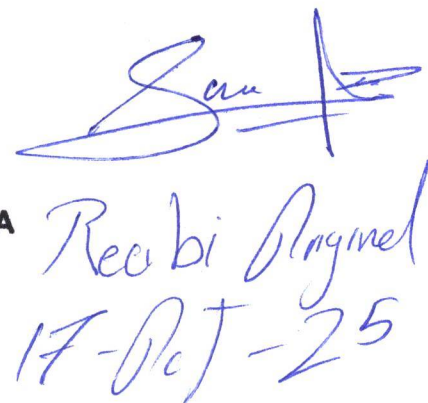 A Recibi Original
17-Oct-25